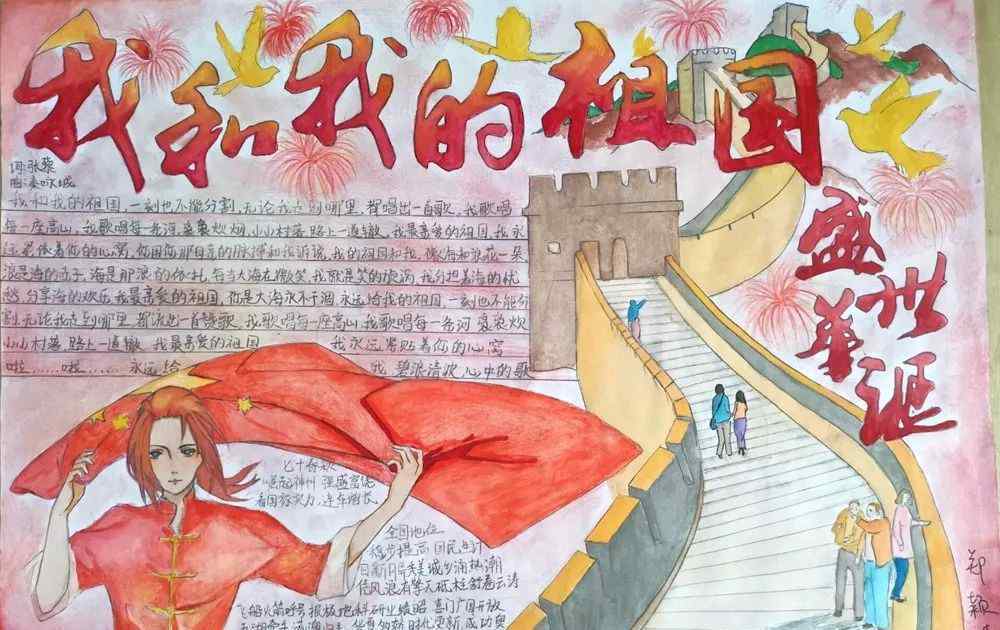 我和我的祖国
盛世华诞
词:张藜
曲:秦咏诚
我和我的祖国,一刻也不能分割,无论我走到哪里,都唱出一首歌,我歌唱
每一座高山,我歌唱每一条河,袅袅炊烟,小小村落,路上一道辙,我最亲爱的祖国,我永
远紧依着你的心窝,你用你那母亲的脉搏和我诉说,我的祖国和我,像海和浪花一朵
浪是海的赤子,海是那浪的依托,每当大海在微笑,我就是笑的旋涡,我分担着海的忧
愁,分享海的欢乐,我最亲爱的祖国,你是大海永不干涸,永远给我的祖国,一刻也不能分
割,无论我走到哪里,都流出一首赞歌,我歌唱每一座高山,我歌唱每一条河,袅袅炊
小小村落,路上一道辙,我最亲爱的祖国 我永远紧贴着你的心窝
啦……啦…… 永远给 我 碧浪清波,心中的歌
七十春秋
崛起神州 强盛富饶
看国防实力,连年增长
全国地位
稳步提高 国民生计
日新月异秀美城乡涌热潮
任风浪有擎天砥柱舒卷云涛
飞船火箭呼号报 科研业绩昭 喜门广开放
郑颖